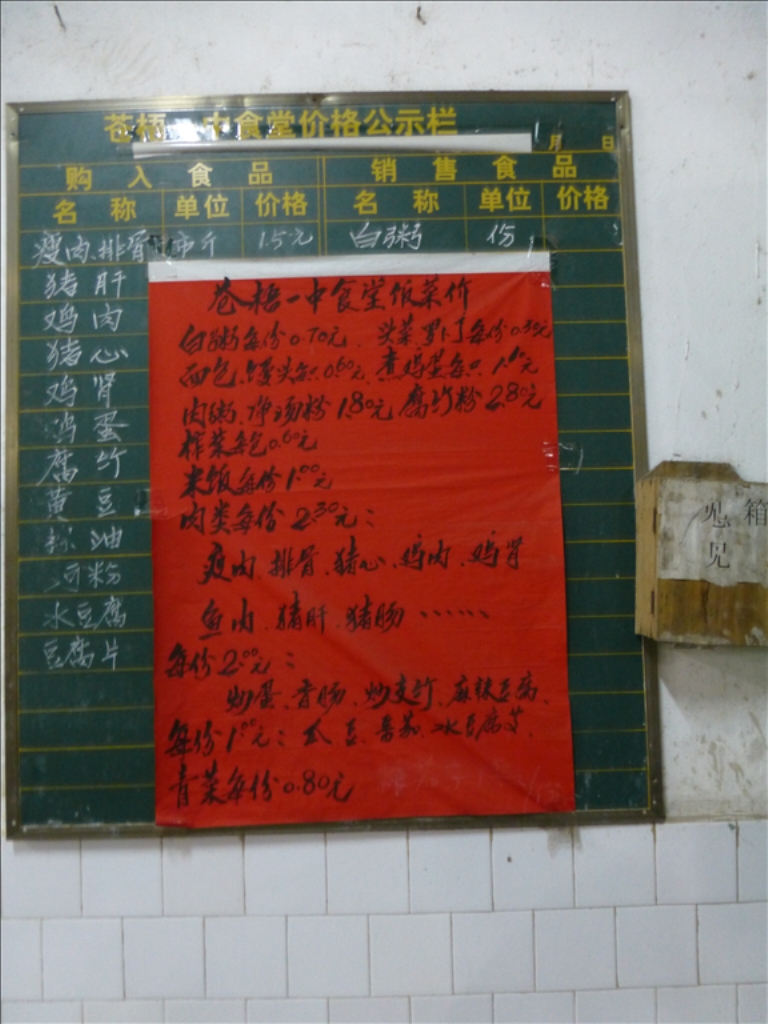 苍梧一中食堂价格公示栏
月 日
购入食品 销售食品
名称 单位 价格 名称 单位 价格
瘦肉.排骨 市斤 15元 白粥 份
猪肝
鸡肉
猪心
鸡肾
鸡蛋
腐竹
黄豆
油
河粉
水豆腐
豆腐片
苍梧一中食堂饭菜价
白粥每份0.70元、头菜.罗卜丁每份0.30元
面包.馒头每只0.60元.煮鸡蛋每只1.元
肉粥.净汤粉1.80元 腐竹粉2.80元
榨菜每包0.60元
米饭每份1.00元
肉类每份2.30元：
瘦肉.排骨.猪心.鸡肉.鸡肾
鱼肉.猪肝.猪肠……
每份2.00元：
炒蛋.香肠.炒支竹.麻辣豆腐.
每份1.00元：瓜.豆.番茄.水豆腐
青菜每份0.80元
意见箱